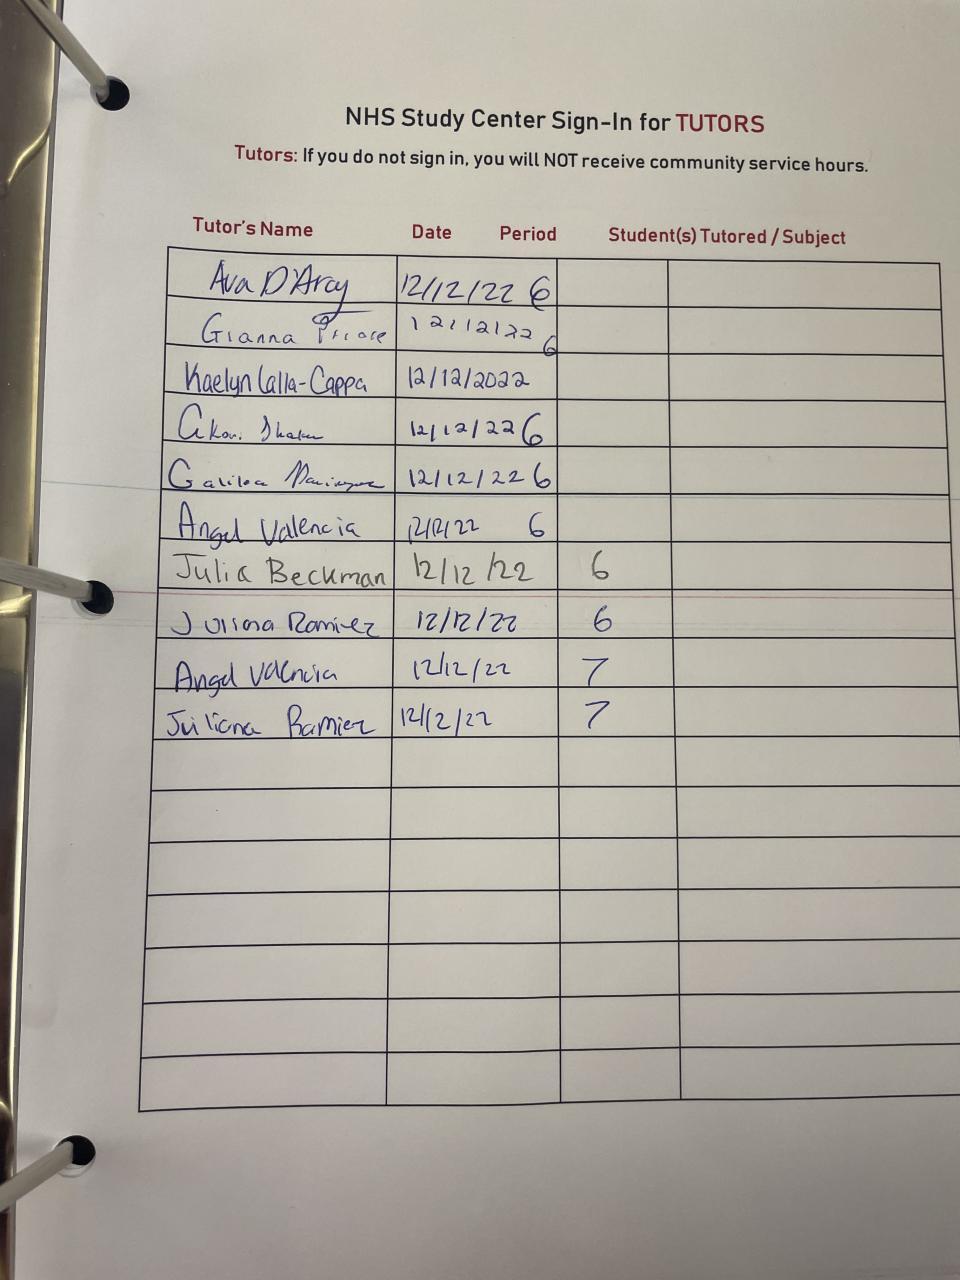 NHS Study Center Sign-In for TUTORS
Tutors: If you do not sign in, you will NOT receive community service hours.
Tutor's Name Date Period Student(s) Tutored / Subject
Ava D'Arcy 12/12/22 6
Gianna 12/12/22 6
Kaelyn Calla-Cappa 12/12/2022
12/12/22 6
Galilea 12/12/22 6
Angel Valencia 12/12/22 6
Julia Beckman 12/12/22 6
Ramirez 12/12/22 6
Angel Valencia 12/12/22 7
Juliana Ramirez 12/12/22 7